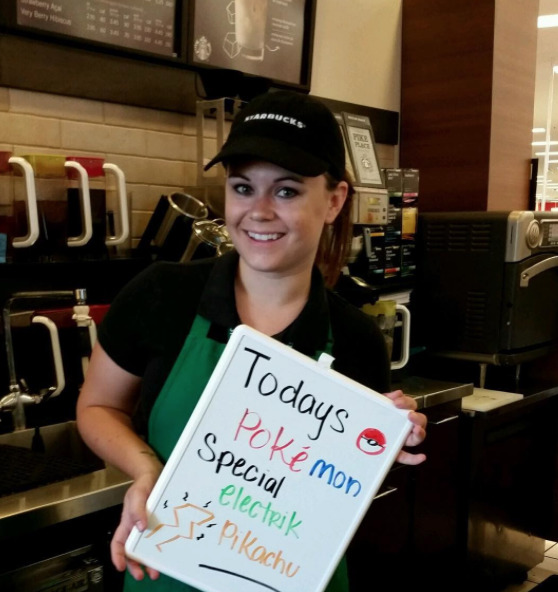 Strawberry Acai
Very Berry Hibiscus
STARBUCKS
PIKE
PLACE
Todays
Pokémon
Special
electrik
Pikachu